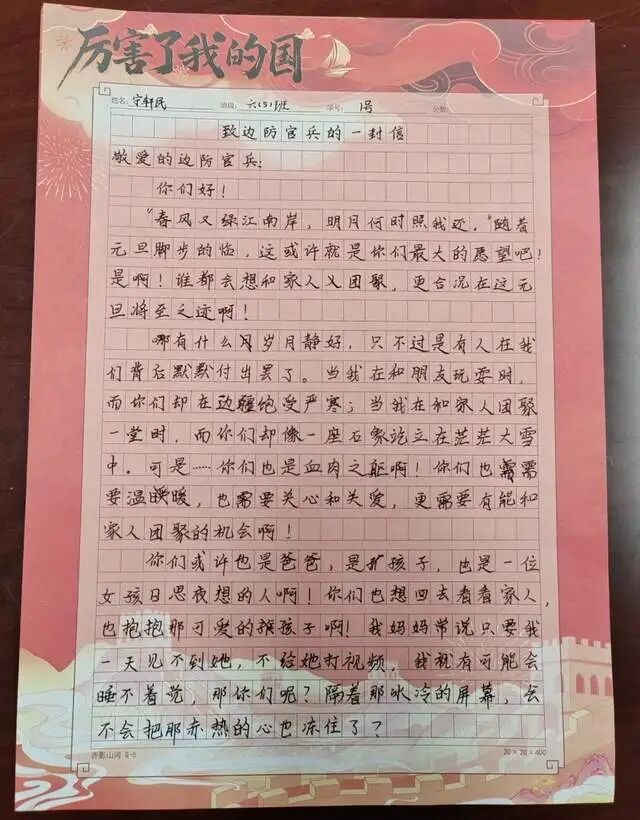 厉害了我的国
姓名：宁轩民 班级：六(5)班 学号：1号 分数：
致边防官兵的一封信
敬爱的边防官兵：
你们好！
“春风又绿江南岸，明月何时照我还，”随着
元旦脚步的临，这或许就是你们最大的愿望吧！
是啊！谁都会想和家人义团聚，更合况在这元
旦将至之迹啊！
哪有什么岁月静好，只不过是有人在我
们背后默默付出罢了。当我在和朋友玩耍时，
而你们却在边疆饱受严寒；当我在和家人团聚
一堂时，而你们却像一座石象讫立在茫茫大雪
中。可是……你们也是血肉之躯啊！你们也需
要温暖，也需要关心和关爱，更需要有能和
家人团聚的机会啊！
你们或许也是爸爸，是孩子，也是一位
女孩日思夜想的人啊！你们也想回去看看家人，
也抱抱那可爱的孩子啊！我妈妈常说只要我
一天见不到她，不给她打视频，我就有可能会
睡不着觉，那你们呢？隔着那冰冷的屏幕，会
不会把那赤热的心也冻住了？
赤影山河 B-5
20×20=400